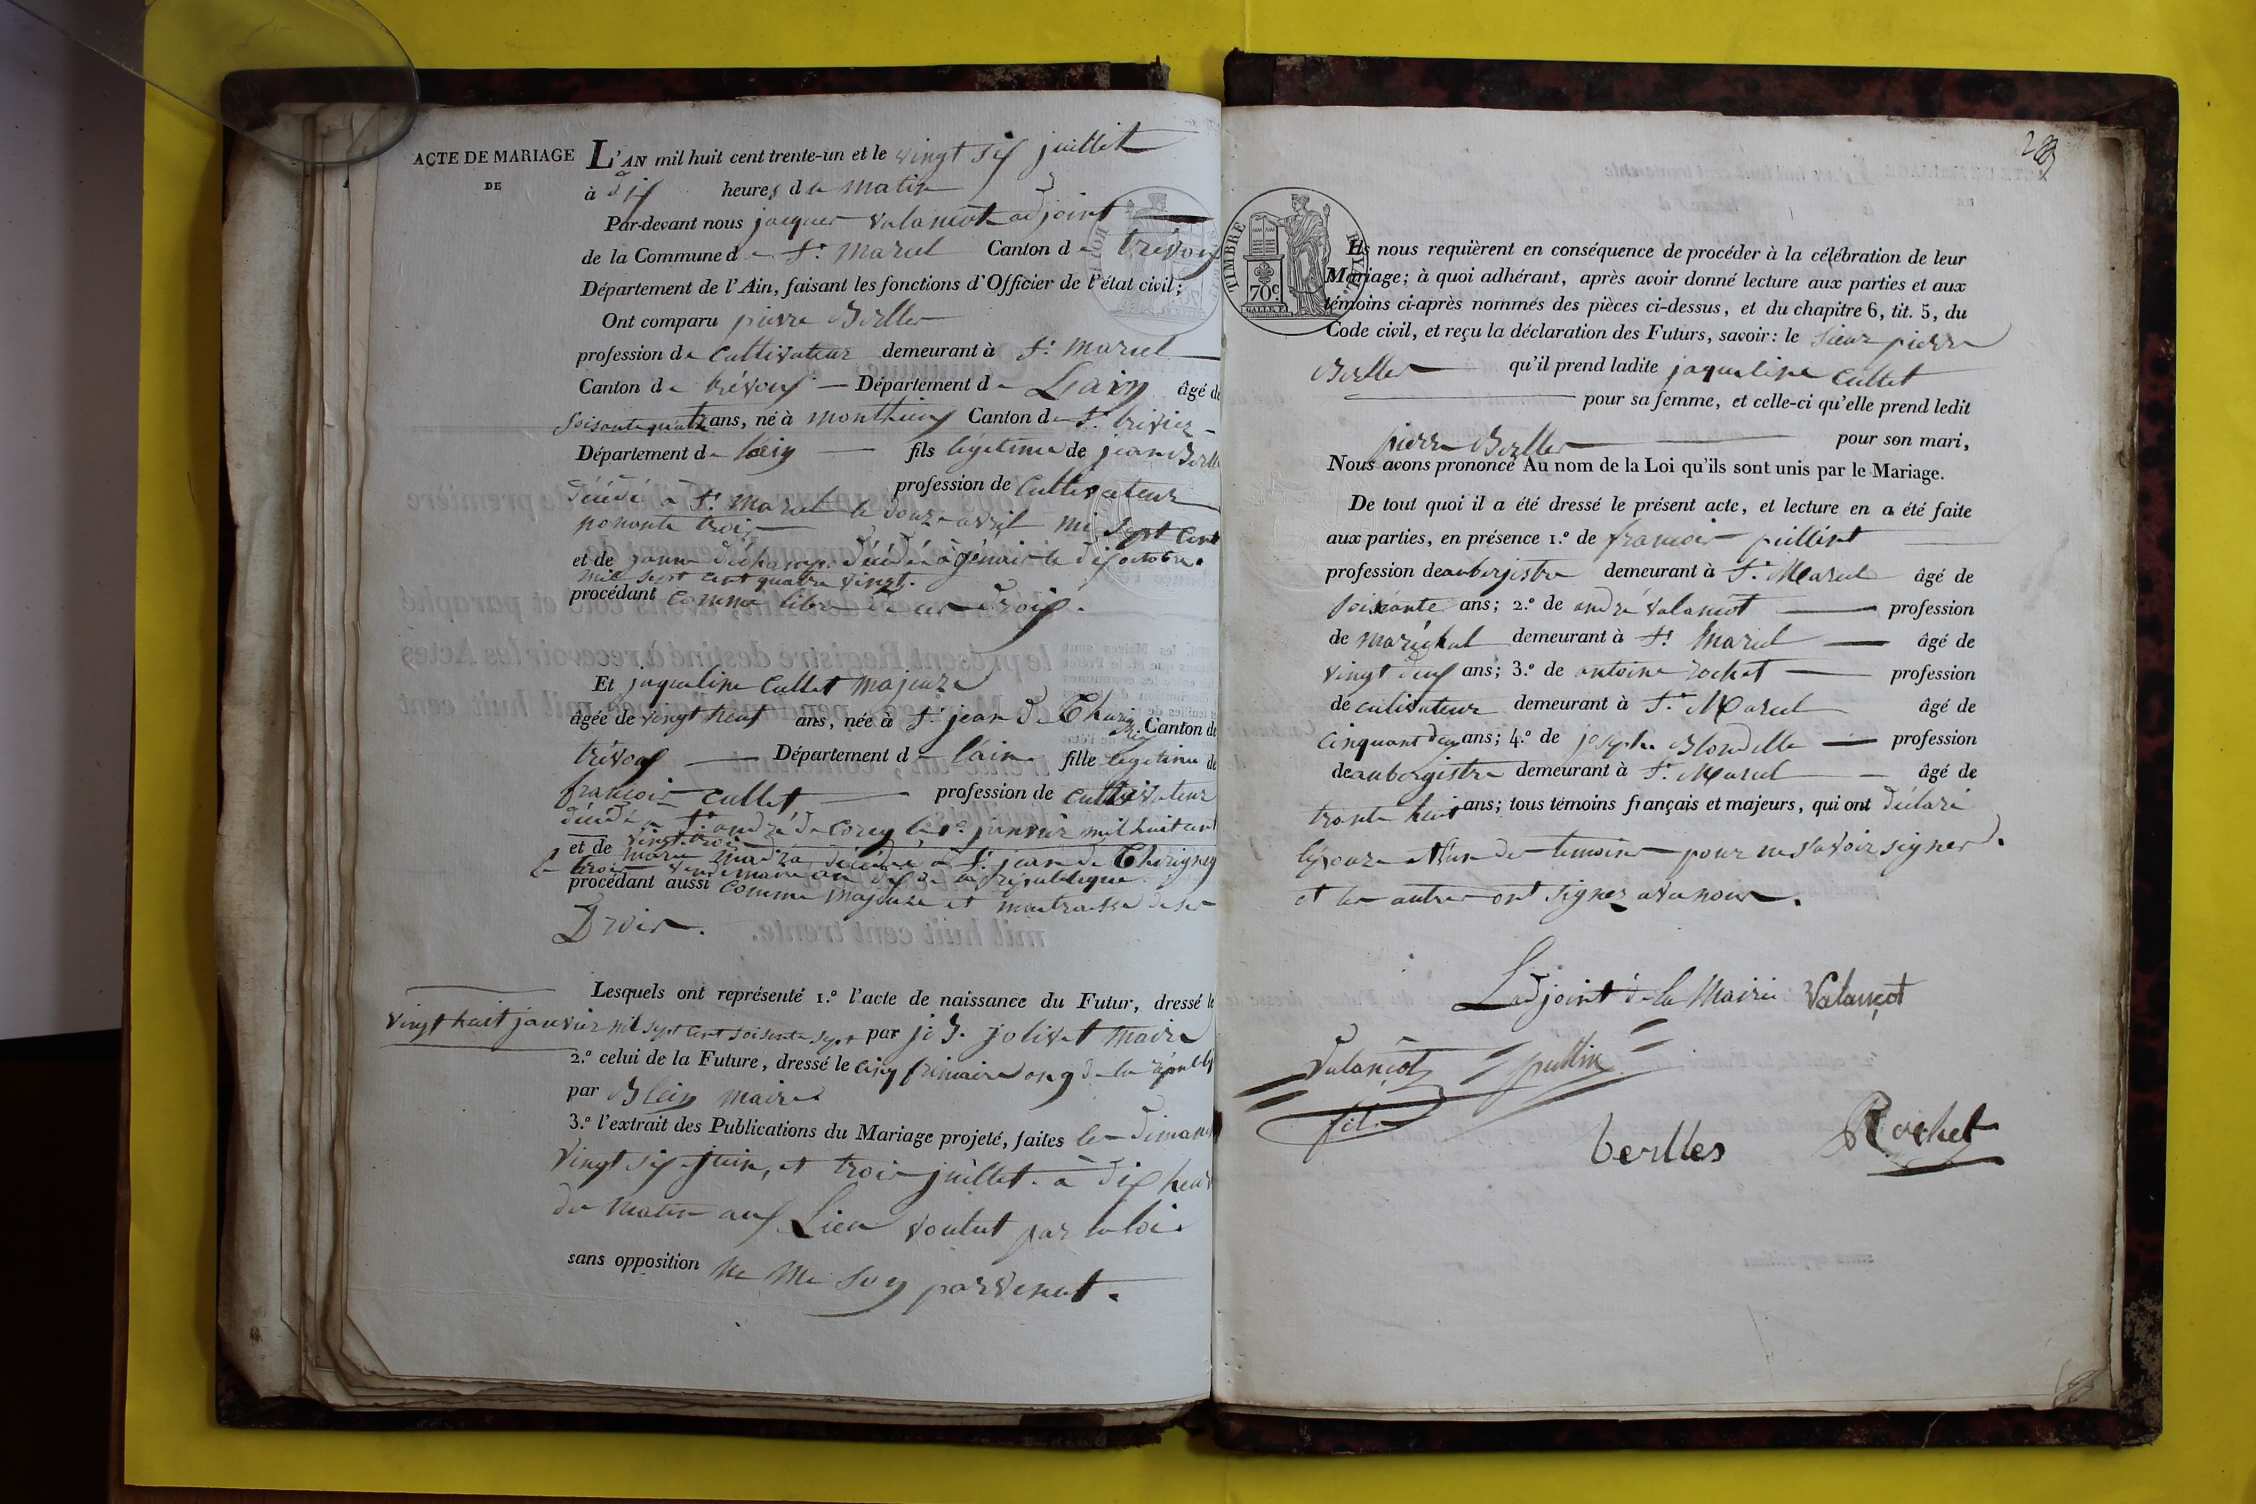 ACTE DE MARIAGE
DE
L'AN mil huit cent trente-un et le vingt six juillet
à dix heures du matin
Par-devant nous jacques valancot adjoint
de la Commune de St. Marcel Canton de trévoux
Département de l'Ain, faisant les fonctions d'Officier de l'état civil;
Ont comparu pierre Berlles
profession de Cultivateur demeurant à St. Marcel
Canton de trévoux Département de Lain âgé de
soisante quatre ans, né à monthieux Canton de St. trivier
Département de lain fils légitime de jean Berlles
profession de Cultivateur
décédé à St. Marcel le douze avril mil sept Cent
nonante trois
et de décédée à génai le dix octobre
mil sept cent quatre vingt.
procédant comme libre de ces droix.
Et jaqueline Cullet majeure
âgée de vingt neuf ans, née à St. jean de Thurigneux Canton de
trévoux Département de lain fille légitime de
francois cullet profession de cultivateur
décédé à St. andré de Corcy le janvier mil huit cent
vingt trois
et de marie décédée à St. jean de Thurigneux
le trois vendemaire an dix de la république
procédant aussi comme majeure et maitraisse de ses
Droix.
Lesquels ont représenté 1.° l'acte de naissance du Futur, dressé le
vingt huit janvier mil sept cent soisente sept par jolivet maire
2.° celui de la Future, dressé le cinq frimaire an 9 de la républ
par Blein maire
3.° l'extrait des Publications du Mariage projeté, faites les dimanch
vingt six juin, et trois juillet à dix heur
du matin aux Lieu voulut par la loi
sans opposition ne me soy parvenut.
TIMBRE ROYAL
70c.
Ils nous requièrent en conséquence de procéder à la célébration de leur
Mariage; à quoi adhérant, après avoir donné lecture aux parties et aux
témoins ci-après nommés des pièces ci-dessus, et du chapitre 6, tit. 5, du
Code civil, et reçu la déclaration des Futurs, savoir: le sieur pierre
Berlles qu'il prend ladite jaqueline Cullet
pour sa femme, et celle-ci qu'elle prend ledit
pierre Berlles pour son mari,
Nous avons prononcé Au nom de la Loi qu'ils sont unis par le Mariage.
De tout quoi il a été dressé le présent acte, et lecture en a été faite
aux parties, en présence 1.° de francois
profession de aubergistre demeurant à St. Marcel âgé de
soixante ans; 2.° de andré valancot profession
de maréchal demeurant à St. Marcel âgé de
vingt deux ans; 3.° de antoine rochet profession
de culivateur demeurant à St. Marcel âgé de
cinquant deux ans; 4.° de joseph Blondelle profession
de aubergistre demeurant à St. Marcel âgé de
trante huit ans; tous témoins français et majeurs, qui ont déclaré
lépouze et l'un des temoins pour ne savoir signer
et les autres ont signez avec nous.
Ladjoint de la Mairie Valançot
Valançot pullin
fils
berlles Rochet